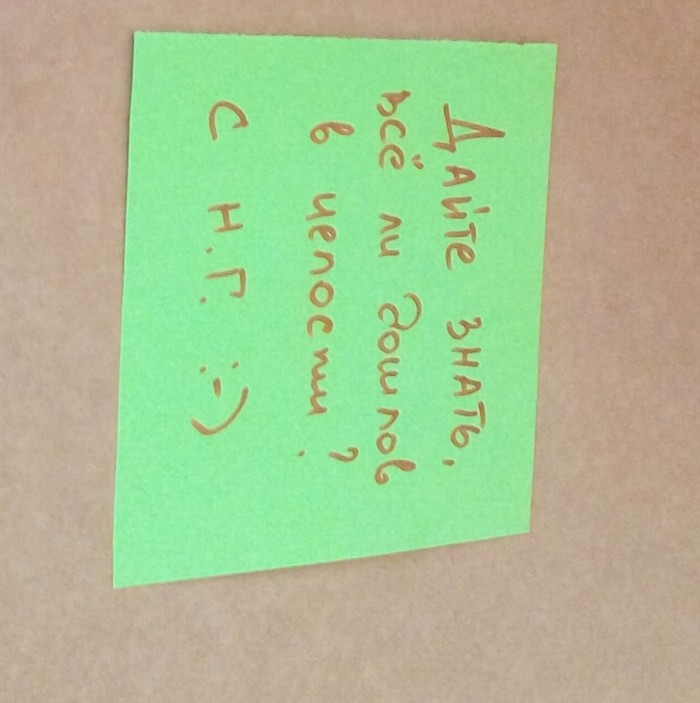 Дайте знать,
всё ли дошлов
в целости?
С Н.Г. :-)